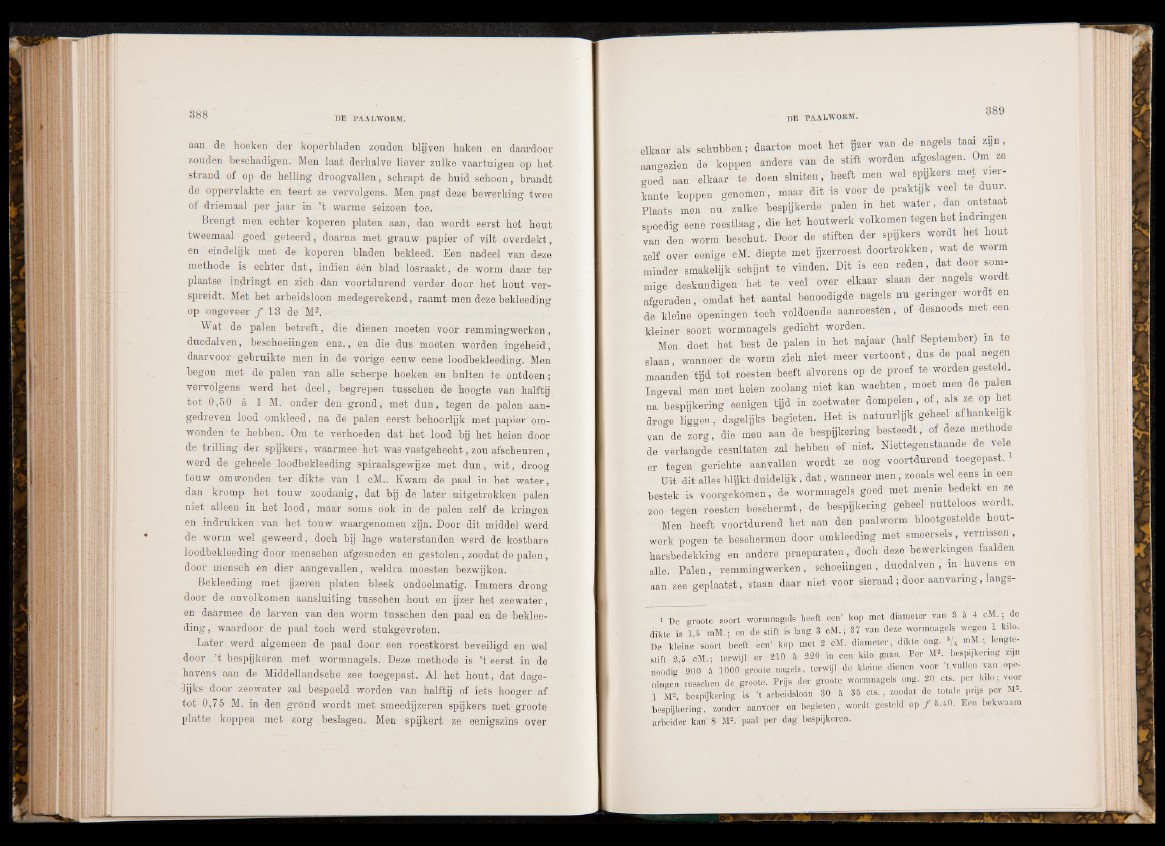 388
DE PAALWORM.
aan de hoeken der koperbladen zouden blijven haken en daardoor
zouden beschadigen. Men laat derhalve liever zulke vaartuigen op het
strand of op de helling droogvallen, schrapt de huid schoon, brandt
de oppervlakte en teert ze vervolgens. Men past deze bewerking twee
of driemaal per jaar in 't warme seizoen toe.
Brengt men echter koperen platen aan, dan wordt eerst het hout
tweemaal goed geteerd, daarna met grauw papier of vilt overdekt,
en eindelijk met de koperen bladen bekleed. Een nadeel van deze
methode is echter dat, indien één blad losraakt, de worm daar ter
plaatse indringt en zich dan voortdurend verder door het hout ver-
spreidt. Met het arbeidsloon medegerekend, raamt men deze bekleeding
op ongeveer f 13 de M².
Wat de palen betreft, die dienen moeten voor remmingwerken,
ducdalven, beschoeiingen enz., en die dus moeten worden ingeheid,
daarvoor gebruikte men in de vorige eeuw eene loodbekleeding. Men
begon met de palen van alle scherpe hoeken en bulten te ontdoen;
vervolgens werd het deel, begrepen tusschen de hoogte van halftij
tot 0,50 à 1 M. onder den grond, met dun, tegen de palen aan-
gedreven lood omkleed, na de palen eerst behoorlijk met papier om-
wonden te hebben. Om te verhoeden dat het lood bij het heien door
de trilling der spijkers, waarmee het was vastgehecht, zou afscheuren,
werd de geheele loodbekleeding spiraalsgewijze met dun, wit, droog
touw omwonden ter dikte van 1 cM.. Kwam de paal in het water,
dan kromp het touw zoodanig, dat bij de later uitgetrokken palen
niet alleen in het lood, maar soms ook in de palen zelf de kringen
en indrukken van het touw waargenomen zijn. Door dit middel werd
de worm wel geweerd, doch bij lage waterstanden werd de kostbare
loodbekleeding door menschen afgesneden en gestolen, zoodat de palen,
door mensch en dier aangevallen, weldra moesten bezwijken.
Bekleeding met ijzeren platen bleek ondoelmatig. Immers drong
door de onvolkomen aansluiting tusschen hout en ijzer het zeewater,
en daarmee de larven van den worm tusschen den paal en de beklee-
ding, waardoor de paal toch werd stukgevreten.
Later werd algemeen de paal door een roestkorst beveiligd en wel
door 't bespijkeren met wormnagels. Deze methode is 't eerst in de
havens aan de Middellandsche zee toegepast. Al het hout, dat dage-
lijks door zeewater zal bespoeld worden van halftij of iets hooger af
tot 0,75 M. in den grond wordt met smeedijzeren spijkers met groote
platte koppen met zorg beslagen. Men spijkert ze eenigszins over
DE PAALWORM.
389
elkaar als schubben; daartoe moet het ijzer van de nagels taai zijn,
aangezien de koppen anders van de stift worden afgeslagen. Om ze
goed aan elkaar te doen sluiten, heeft men wel spijkers met vier-
kante koppen genomen, maar dit is voor de praktijk veel te duur.
Plaats men nu zulke bespijkerde palen in het water, dan ontstaat
spoedig eene roestlaag, die het houtwerk volkomen tegen het indringen
van den worm beschut. Door de stiften der spijkers wordt het hout
zelf over eenige cM. diepte met ijzerroest doortrokken, wat de worm
minder smakelijk schijnt te vinden. Dit is een reden, dat door som-
mige deskundigen het te veel over elkaar slaan der nagels wordt
afgeraden, omdat het aantal benoodigde nagels nu geringer wordt en
de kleine openingen toch voldoende aanroesten, of desnoods met een
kleiner soort wormnagels gedicht worden.
Men doet het best de palen in het najaar (half September) in te
slaan, wanneer de worm zich niet meer vertoont, dus de paal negen
maanden tijd tot roesten heeft alvorens op de proef te worden gesteld.
Ingeval men met heien zoolang niet kan wachten, moet men de palen
na bespijkering eenigen tijd in zoetwater dompelen, of, als ze op het
droge liggen, dagelijks begieten. Het is natuurlijk geheel afhankelijk
van de zorg, die men aan de bespijkering besteedt, of deze methode
de verlangde resultaten zal hebben of niet. Niettegenstaande de vele
er tegen gerichte aanvallen wordt ze nog voortdurend toegepast. ¹
Uit dit alles blijkt duidelijk, dat, wanneer men, zooals wel eens in een
bestek is voorgekomen, de wormnagels goed met menie bedekt en ze
zoo tegen roesten beschermt, de bespijkering geheel nutteloos wordt.
Men heeft voortdurend het aan den paalworm blootgestelde hout-
werk pogen te beschermen door omkleeding met smeersels, vernissen,
harsbedekking en andere praeparaten, doch deze bewerkingen faalden
alle. Palen, remmingwerken, schoeiingen, ducdalven, in havens en
aan zee geplaatst, staan daar niet voor sieraad; door aanvaring, langs-
¹ De groote soort wormnagels heeft een' kop met diameter van 3 à 4 cM.; de
dikte is 1,5 mM.; en de stift is lang 3 cM.; 37 van deze wormnagels wegen 1 kilo.
De kleine soort heeft een' kop met 2 cM. diameter, dikte ong. ³/₄ mM.; lengte-
stift 2,5 cM.; terwijl er 210 à 220 in een kilo gaan. Per M². bespijkering zijn
noodig 900 à 1000 groote nagels, terwijl de kleine dienen voor 't vullen van ope-
ningen tusschen de groote. Prijs der groote wormnagels ong. 20 cts. per kilo; voor
1 M². bespijkering is 't arbeidsloon 30 à 35 cts., zoodat de totale prijs per M².
bespijkering, zonder aanvoer en begieten, wordt gesteld op f 5.40. Een bekwaam
arbeider kan 8 M². paal per dag bespijkeren.